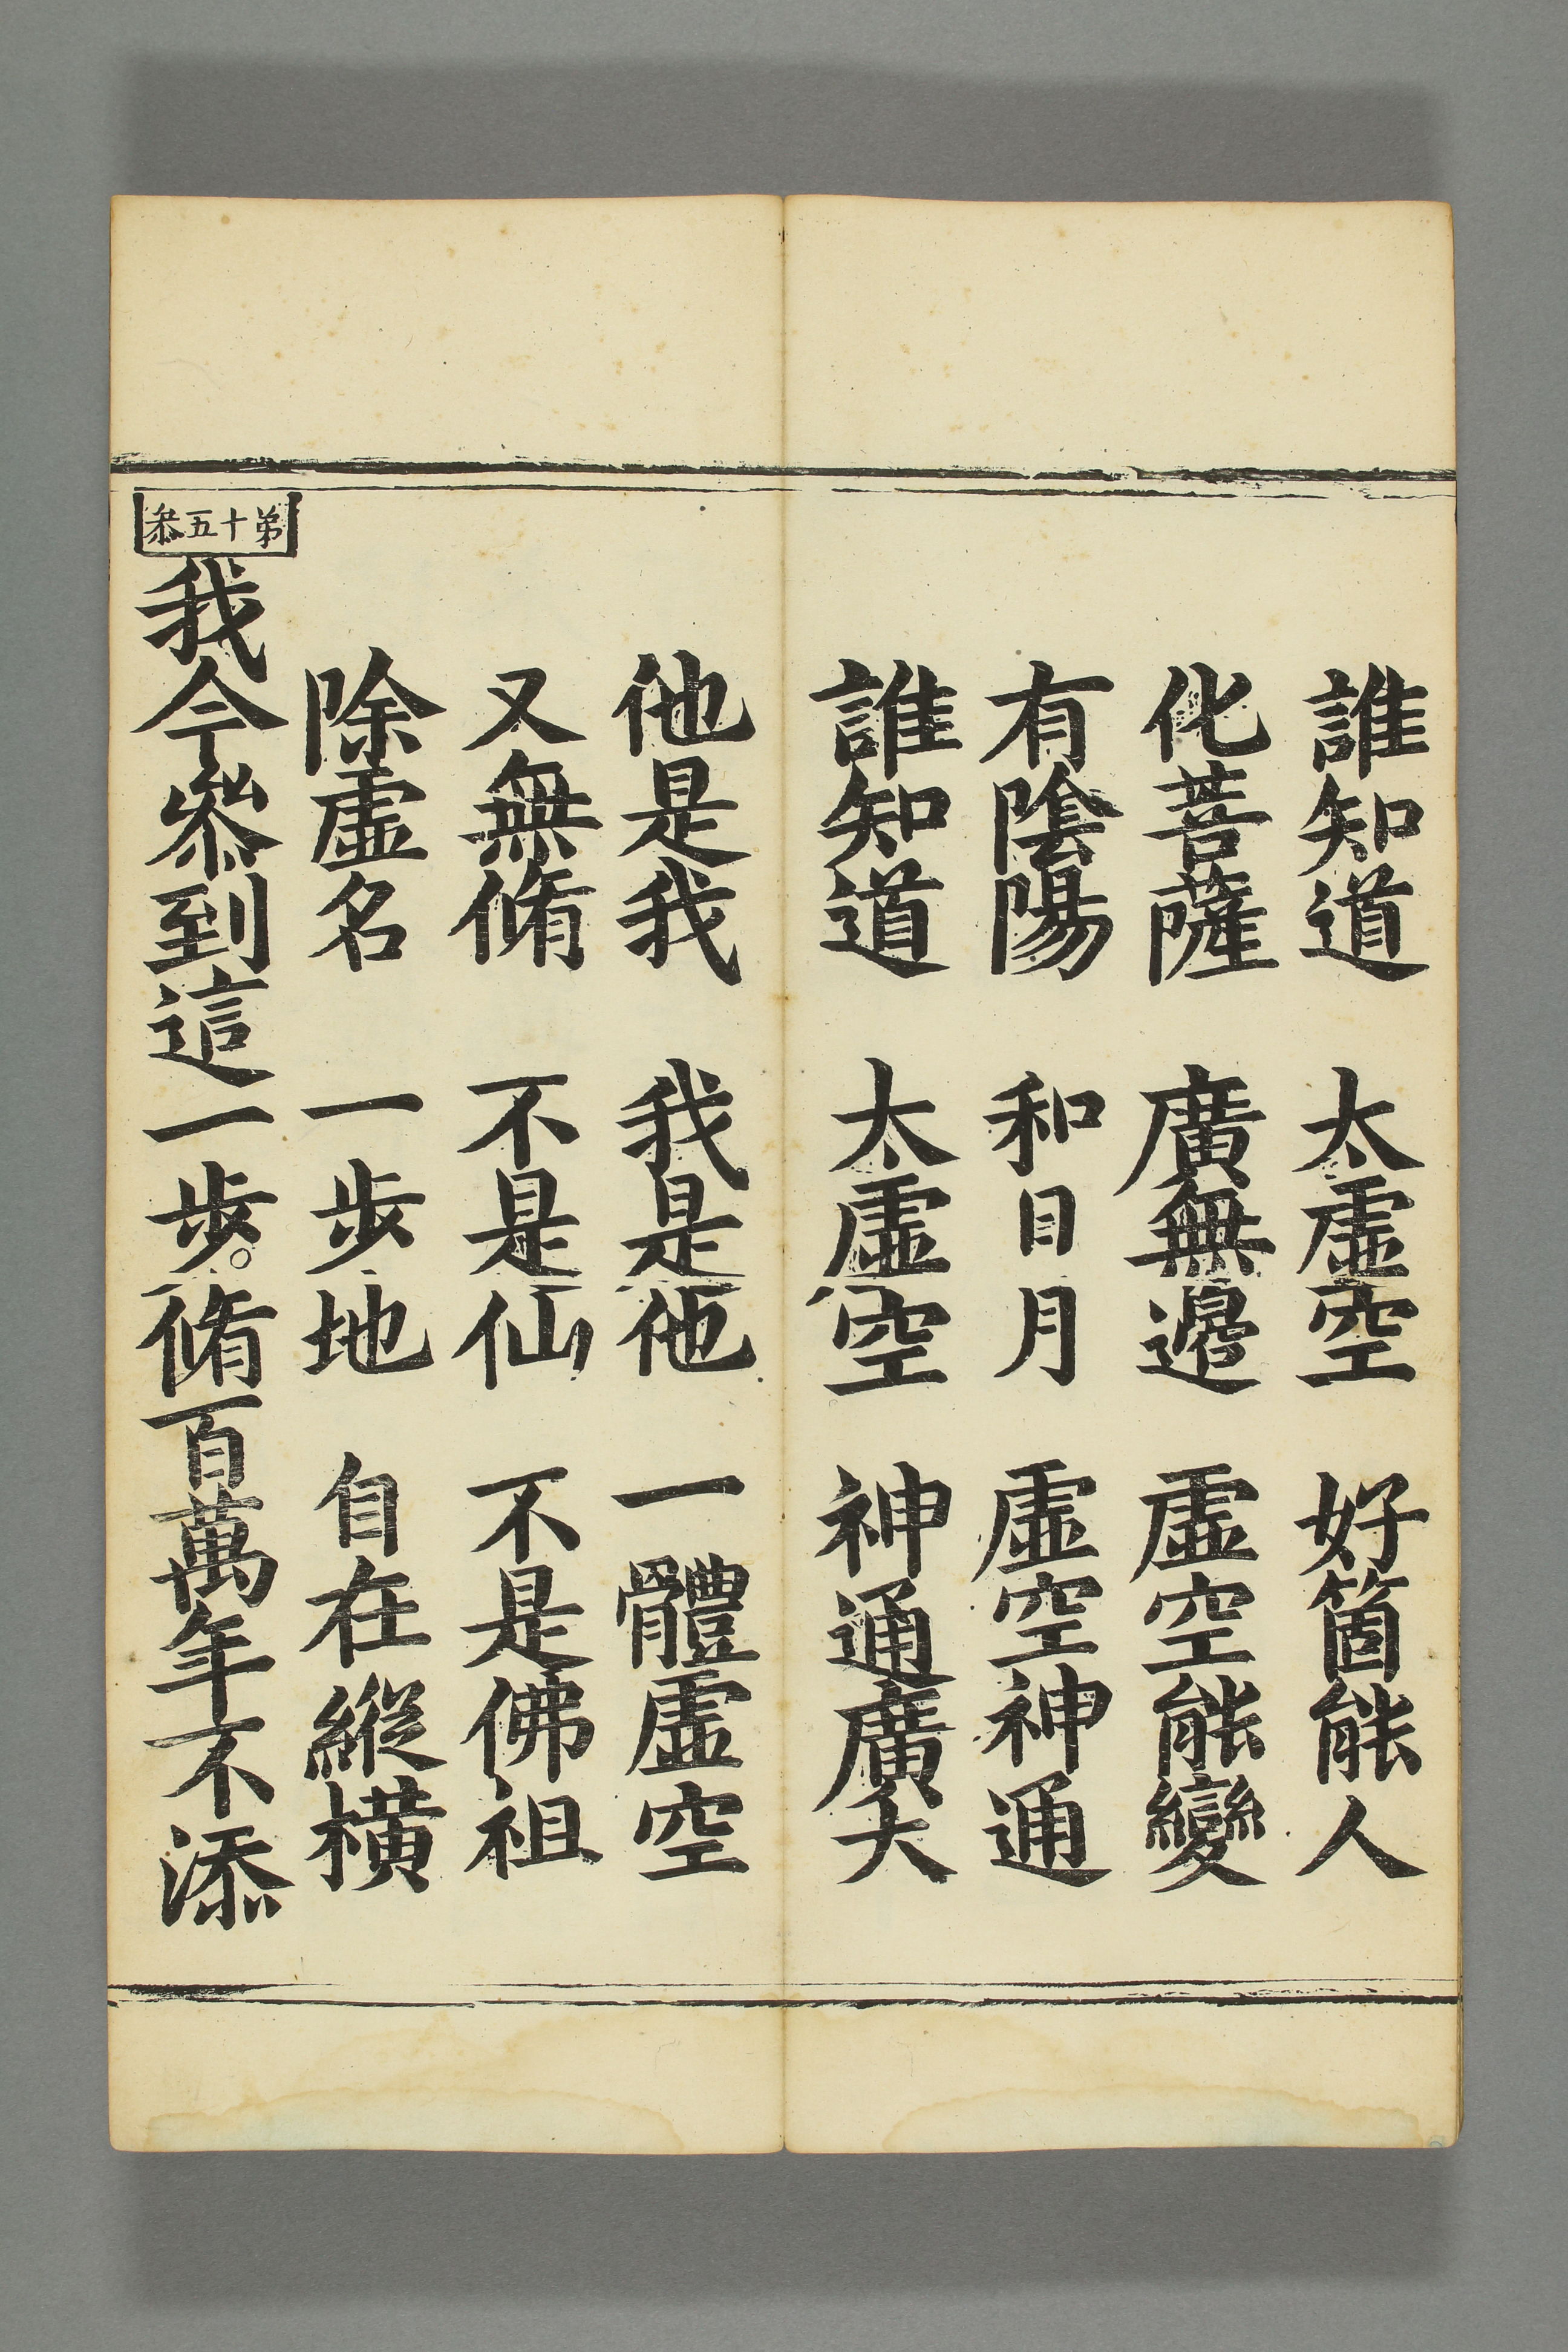 誰知道　太虛空　好箇能人
化菩薩　廣無邊　虛空能變
有陰陽　和日月　虛空神通
誰知道　太虛空　神通廣大
他是我　我是他　一體虛空
又無脩　不是仙　不是佛祖
除虛名　一步地　自在縱橫
第十五叅
我今叅到這一步。脩百萬年不添